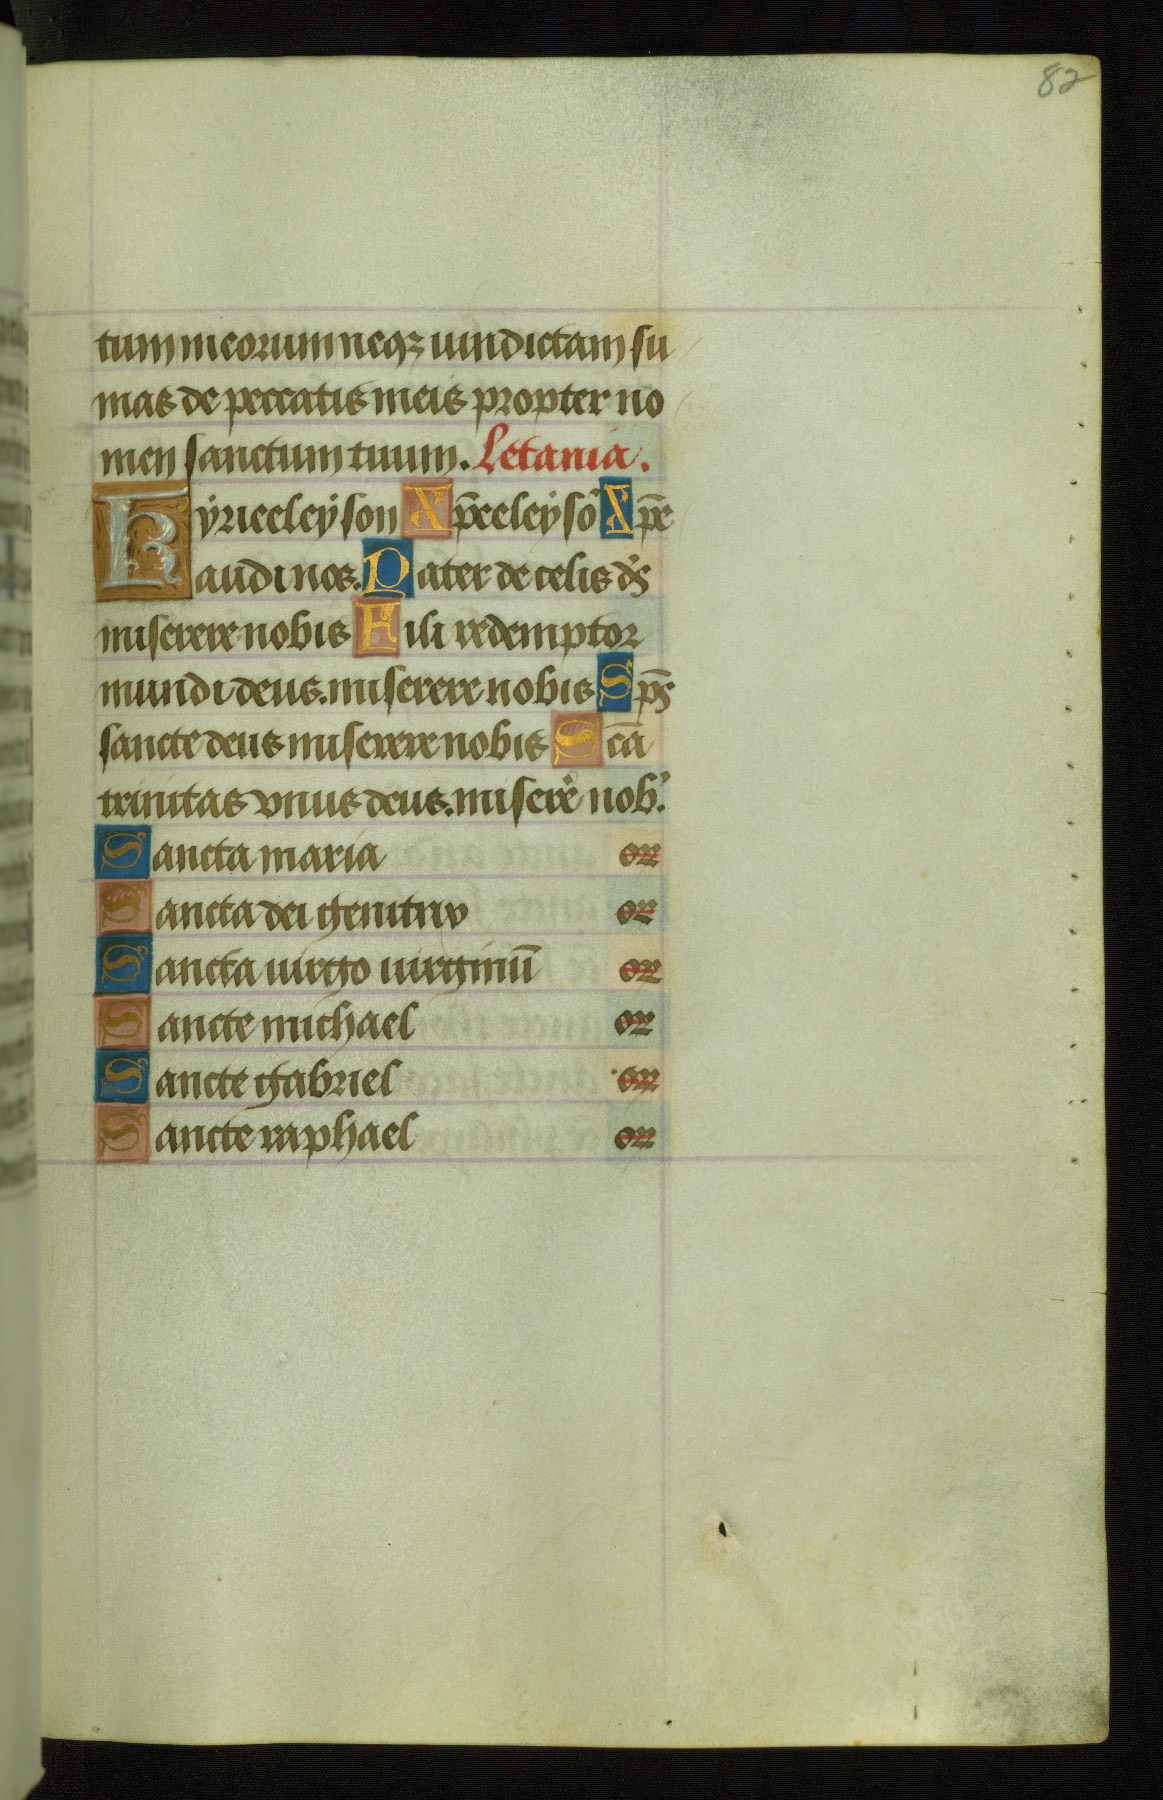 82
tum meorum neqꝫ uindictam su
mas de peccatis meis propter no
men sanctum tuum. Letania.
Kyrieeleyson Xp̄eeleysō Xp̄e
audi nos. Pater de celis ds̄
miserere nobis Fili redemptor
mundi deus. miserere nobis Sps̄
sancte deus miserere nobis Scā
trinitas vnus deus. miserē nob᾽.
Sancta maria or
Sancta dei genitrix or
Sancta uirgo uirginū or
Sancte michael or
Sancte gabriel or
Sancte raphael or